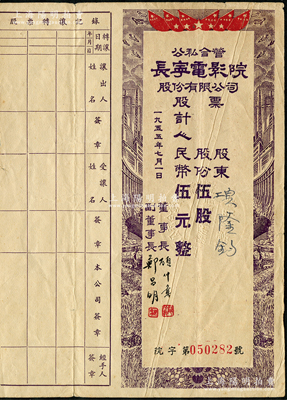 公私合營
長寧電影院
股份有限公司
股票
股東
股份伍股
計人民幣伍元整
一九五五年七月一日
董事長
副董事長
沅字第050282號
股票轉讓記錄
轉讓日期
年月日
讓出人
姓名
簽章
受讓人
姓名
簽章
本公司簽章
經手人簽章